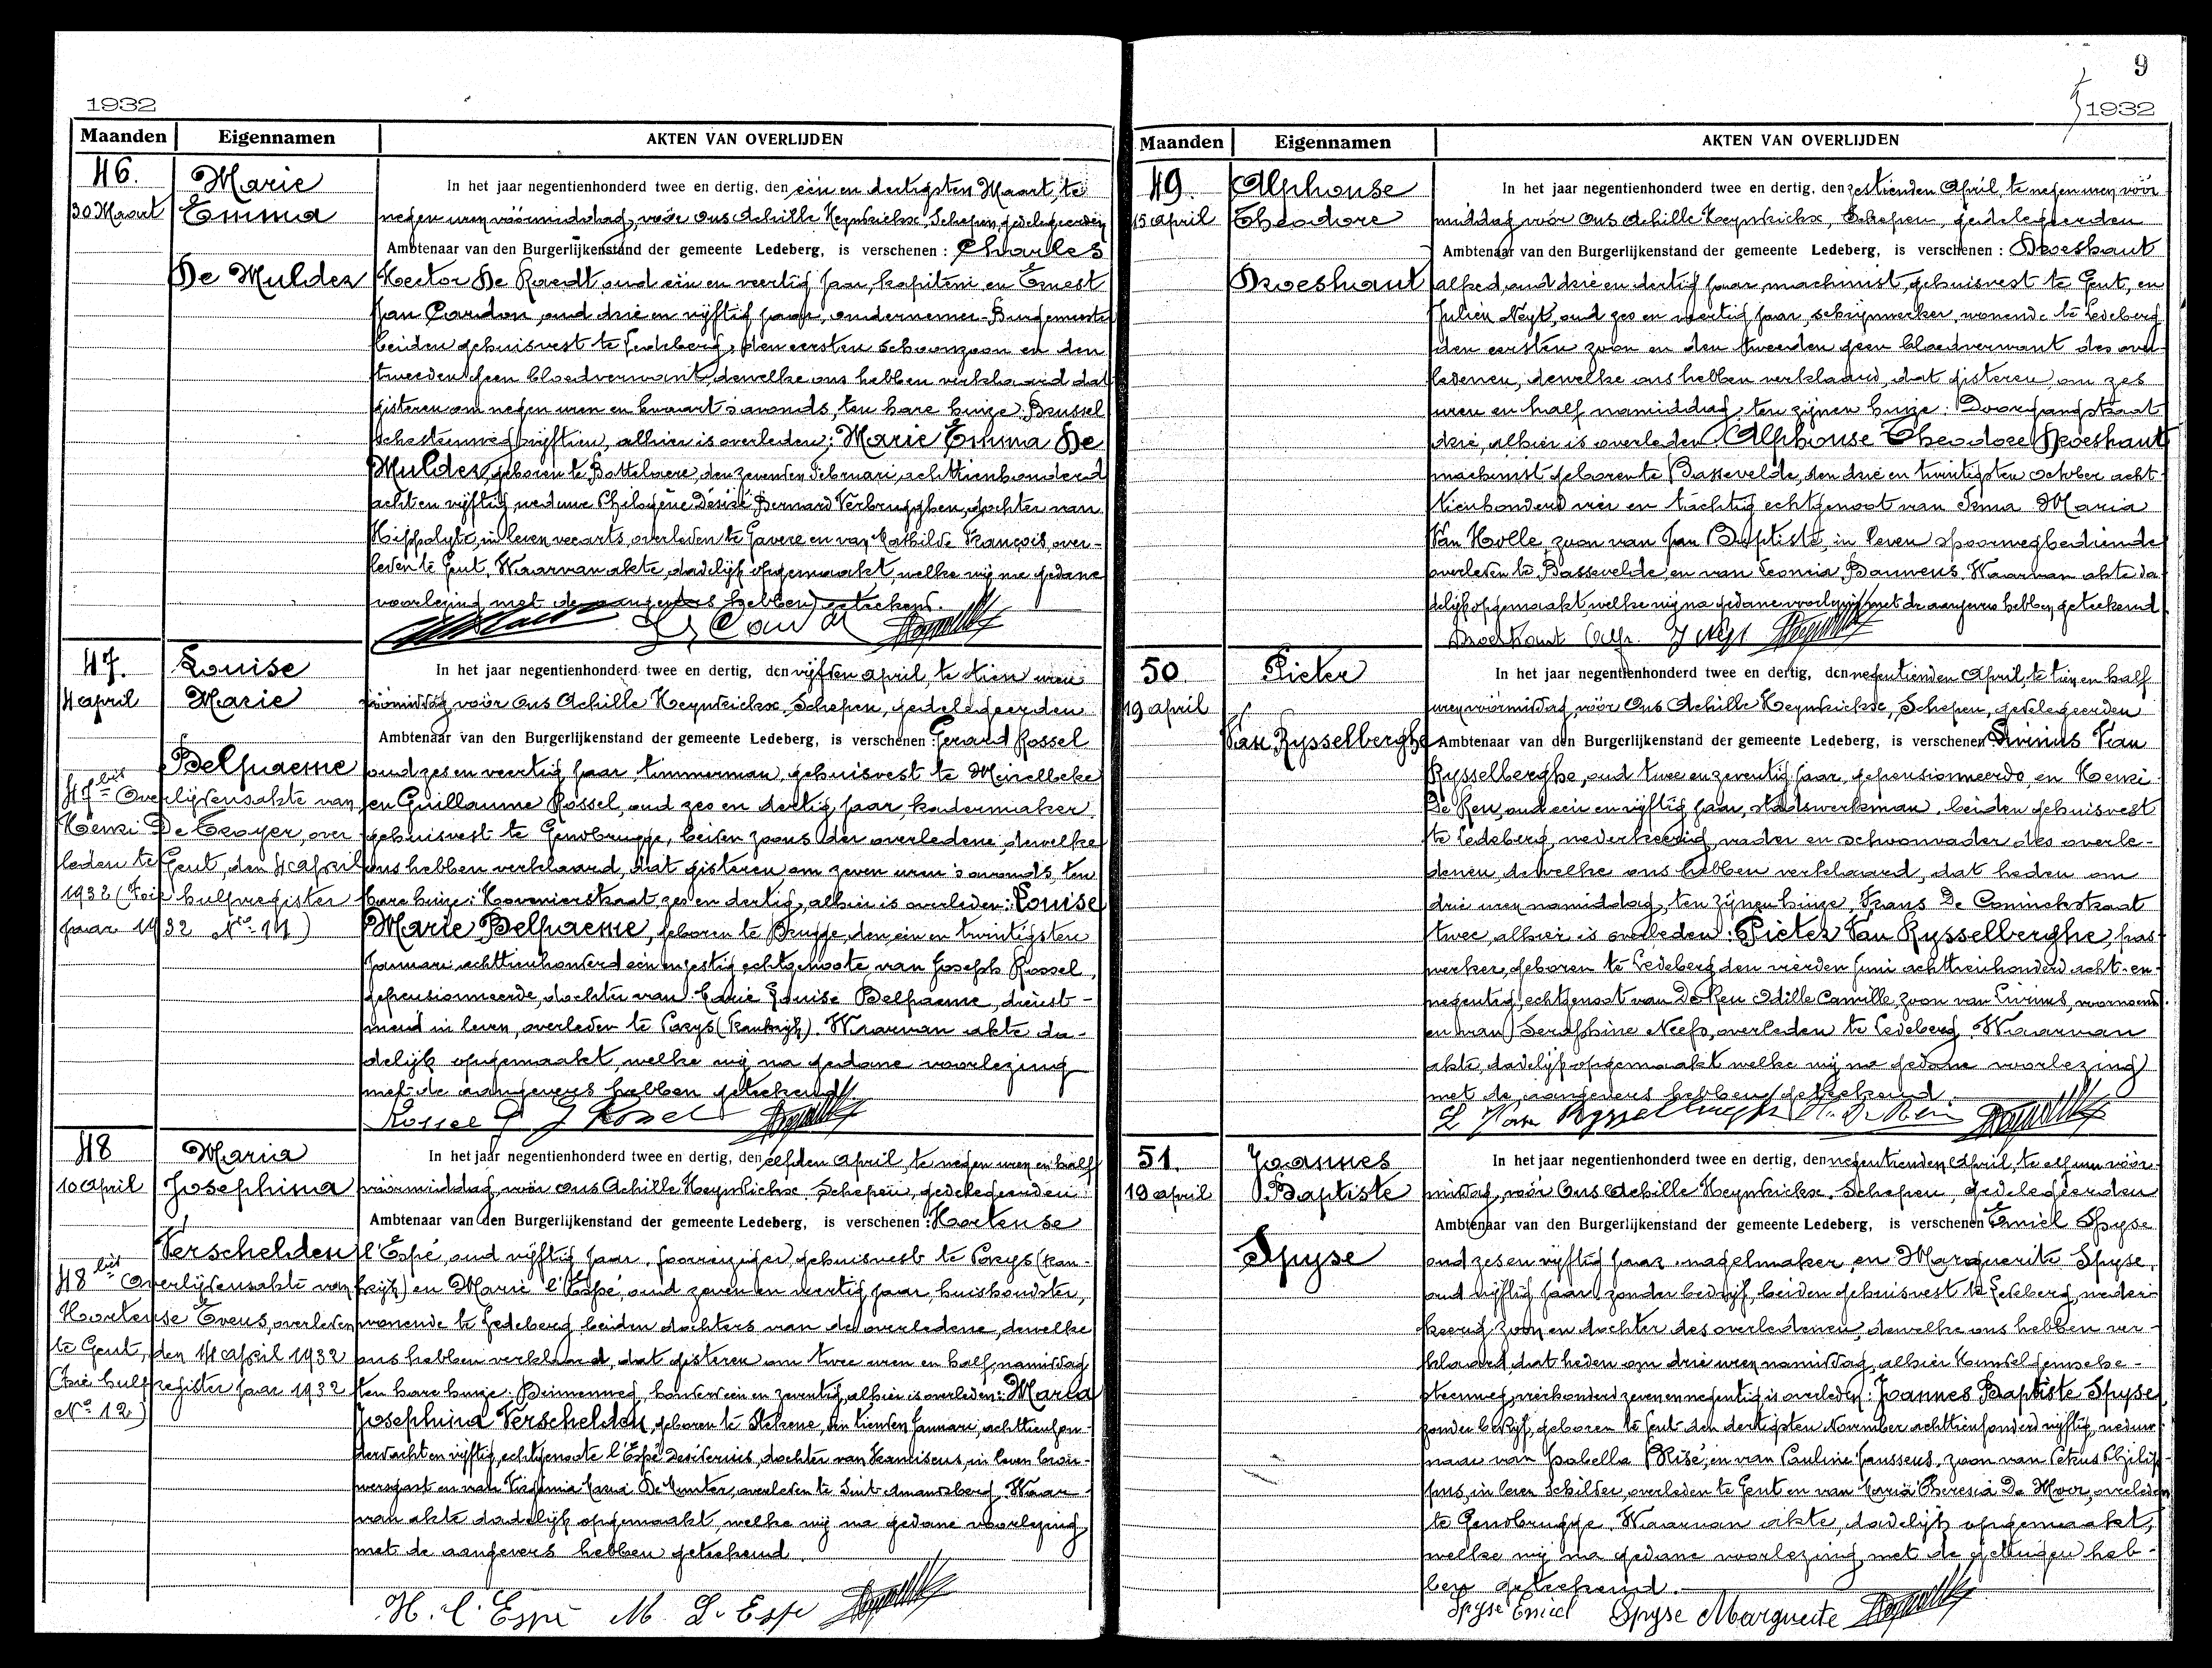 1932
Maanden Eigennamen AKTEN VAN OVERLIJDEN
46.
30 Maart
Marie
Emma
De Mulder
In het jaar negentienhonderd twee en dertig, den één en dertigsten Maart, te
negen uren vóórmiddag, vóór Ons Achille Heynkickx, Schepen, gedelegeerden
Ambtenaar van den Burgerlijkenstand der gemeente Ledeberg, is verschenen : Charles
Hector De Raedt, oud één en veertig jaar, kapitein en Ernest
Jan Cardon, oud drie en vijftig jaar, ondernemer-Burgemeester
beiden gehuisvest te Ledeberg, den eersten schoonzoon en den
tweeden geen bloedverwant, dewelke ons hebben verklaard dat
gisteren om negen uren en kwaart s'avonds, ten hare huize: Brussel
schesteenweg vijftien, alhier is overleden: Marie Emma De
Mulder, geboren te Bottelaere, den zevenden Februari achttienhonderd
acht en vijftig, weduwe Philogène Désiré Bernard Verbrugghen, dochter van
Hippolyte, in leven veearts, overleden te Gavere en van Mathilde François, over-
leden te Gent. Waarvan akte, dadelijk opgemaakt, welke wij na gedane
voorlezing met de aangevers hebben geteekend.
47.
4 april
Louise
Marie
Belpaeme
47bis Overlijdensakte van
Henri De Troyer, over
leden te Gent, den 4 april
1932 (Zie hulpregister
jaar 1932 No. 11)
In het jaar negentienhonderd twee en dertig, den vijfden april, te tien uren
vóórmiddag vóór Ons Achille Heynkickx, Schepen, gedelegeerden
Ambtenaar van den Burgerlijkenstand der gemeente Ledeberg, is verschenen : Gerard Rossel
oud zes en veertig jaar timmerman, gehuisvest te Meirelbeke
en Guillaume Rossel, oud zes en dertig jaar, kadermaker
gehuisvest te Gendbrugge, beiden zoons der overledene, dewelke
ons hebben verklaard, dat gisteren om zeven uren s'avonds, ten
hare huize: Hovenierstraat zes en dertig, alhier is overleden: Louise
Marie Belpaeme, geboren te Brugge, den één en twintigsten
Januari achttienhonderd één en zestig echtgenoote van Joseph Rossel,
gepensionneerde, dochter van Marie Louise Belpaeme, dienst-
meid in leven, overleden te Parys (Frankrijk). Waarvan akte da-
delijk opgemaakt, welke wij na gedane voorlezing
met de aangevers hebben geteekend
Rossel G J Rossel
48
10 April
Maria
Josephina
Verschelden
48bis Overlijdensakte van
Hortense Evens, overleden
te Gent, den 14 april 1932
(Zie hulpregister jaar 1932
No. 12)
In het jaar negentienhonderd twee en dertig, den elfden April, te negen uren en half
vóórmiddag, vóór Ons Achille Heynkickx, Schepen, gedelegeerden
Ambtenaar van den Burgerlijkenstand der gemeente Ledeberg, is verschenen : Hortense
l'Espé, oud vijftig jaar, gehuisvest te Parys (Fran-
krijk) en Marie l'Espé, oud zeven en veertig jaar, huishoudster,
wonende te Ledeberg beiden dochters van de overledene, dewelke
ons hebben verklaard, dat gisteren om twee uren en half namiddag
ten hare huize: Binnenweg, honderd één en zeventig, alhier is overleden: Maria
Josephina Verschelden, geboren te Stekene, den tienden Januari, achttienhon-
derd acht en vijftig, echtgenoote l'Espé Desiderius, dochter van Franciscus, in leven brou-
wersgast en van Virginia De Munter, overleden te Sint Amandsberg. Waar-
van akte dadelijk opgemaakt, welke wij na gedane voorlezing
met de aangevers hebben geteekend.
H. l'Espé M. L'Espé
9
1932
Maanden Eigennamen AKTEN VAN OVERLIJDEN
49.
15 april
Alphonse
Theodore
Droeshaut
In het jaar negentienhonderd twee en dertig, den zestienden April, te negen uren vóór
middag vóór Ons Achille Heynkickx, Schepen, gedelegeerden
Ambtenaar van den Burgerlijkenstand der gemeente Ledeberg, is verschenen : Droeshaut
alfred, oud drie en dertig jaar, machinist, gehuisvest te Gent, en
Julien Neyt, oud zes en veertig jaar, schrijnwerker, wonende te Ledeberg
den eersten zoon en den tweeden geen bloedverwant des over
ledenen, dewelke ons hebben verklaard, dat gisteren om zes
uren en half namiddag, ten zijnen huize: Doorgangstraat
drie, alhier is overleden: Alphonse Theodore Droeshaut
machinist geboren te Bassevelde, den drie en twintigsten october acht-
tienhonderd vier en tachtig echtgenoot van Irma Maria
Van Holle, zoon van Jan Baptiste, in leven spoorwegbediende
overleden te Bassevelde en van Leonia Bauwens. Waarvan akte da
delijk opgemaakt welke wij na gedane voorlezing met de aangevers hebben geteekend
Droeshaut Alf. J Neyt
50
19 april
Pieter
Van Rysselberghe
In het jaar negentienhonderd twee en dertig, den negentienden April, te tien en half
uren vóórmiddag, vóór Ons Achille Heynkickx, Schepen, gedelegeerden
Ambtenaar van den Burgerlijkenstand der gemeente Ledeberg, is verschenen Livinus Van
Rysselberghe, oud twee en zeventig jaar, gepensionneerde, en Henri
De Reu, oud één en vijftig jaar, stadswerkman, beiden gehuisvest
te Ledeberg, wederkeerig vader en schoonvader des overle-
denen, dewelke ons hebben verklaard, dat heden om
drie uren namiddag, ten zijnen huize, Frans De Coninckstraat
twee, alhier is overleden: Pieter Van Rysselberghe, gas-
werker, geboren te Ledeberg den vierden Juni achttienhonderd acht-en-
negentig, echtgenoot van De Reu Odille Camille, zoon van Livinus, voornoemd
en van Seraphine Neefs, overleden te Ledeberg. Waarvan
akte, dadelijk opgemaakt welke wij na gedane voorlezing
met de aangevers hebben geteekend.
L Van Rysselberghe H. De Reu
51.
19 april
Joannes
Baptiste
Spyse
In het jaar negentienhonderd twee en dertig, den negentienden April, te elf uren vóór-
middag, vóór Ons Achille Heynkickx, Schepen, gedelegeerden
Ambtenaar van den Burgerlijkenstand der gemeente Ledeberg, is verschenen Emiel Spyse
oud zes en vijftig jaar, nagelmaker en Marguerite Spyse,
oud vijftig jaar, zonder bedrijf, beiden gehuisvest te Ledeberg, weder-
keerig zoon en dochter des overledenen, dewelke ons hebben ver-
klaard, dat heden om drie uren namiddag, alhier Hundelgemsche-
steenweg, vierhonderd zeven en negentig is overleden: Joannes Baptiste Spyse
zonder bedrijf, geboren te Gent den dertigsten November achttienhonderd vijftig, weduw-
naar van Isabella Risé, en van Pauline Janssens, zoon van Petrus Philip-
pus, in leven Schilder, overleden te Gent en van Maria Theresia De Moor, overleden
te Gendbrugge. Waarvan akte, dadelijk opgemaakt,
welke wij na gedane voorlezing met de getuigen heb-
ben geteekend.
Spyse Emiel Spyse Marguerite